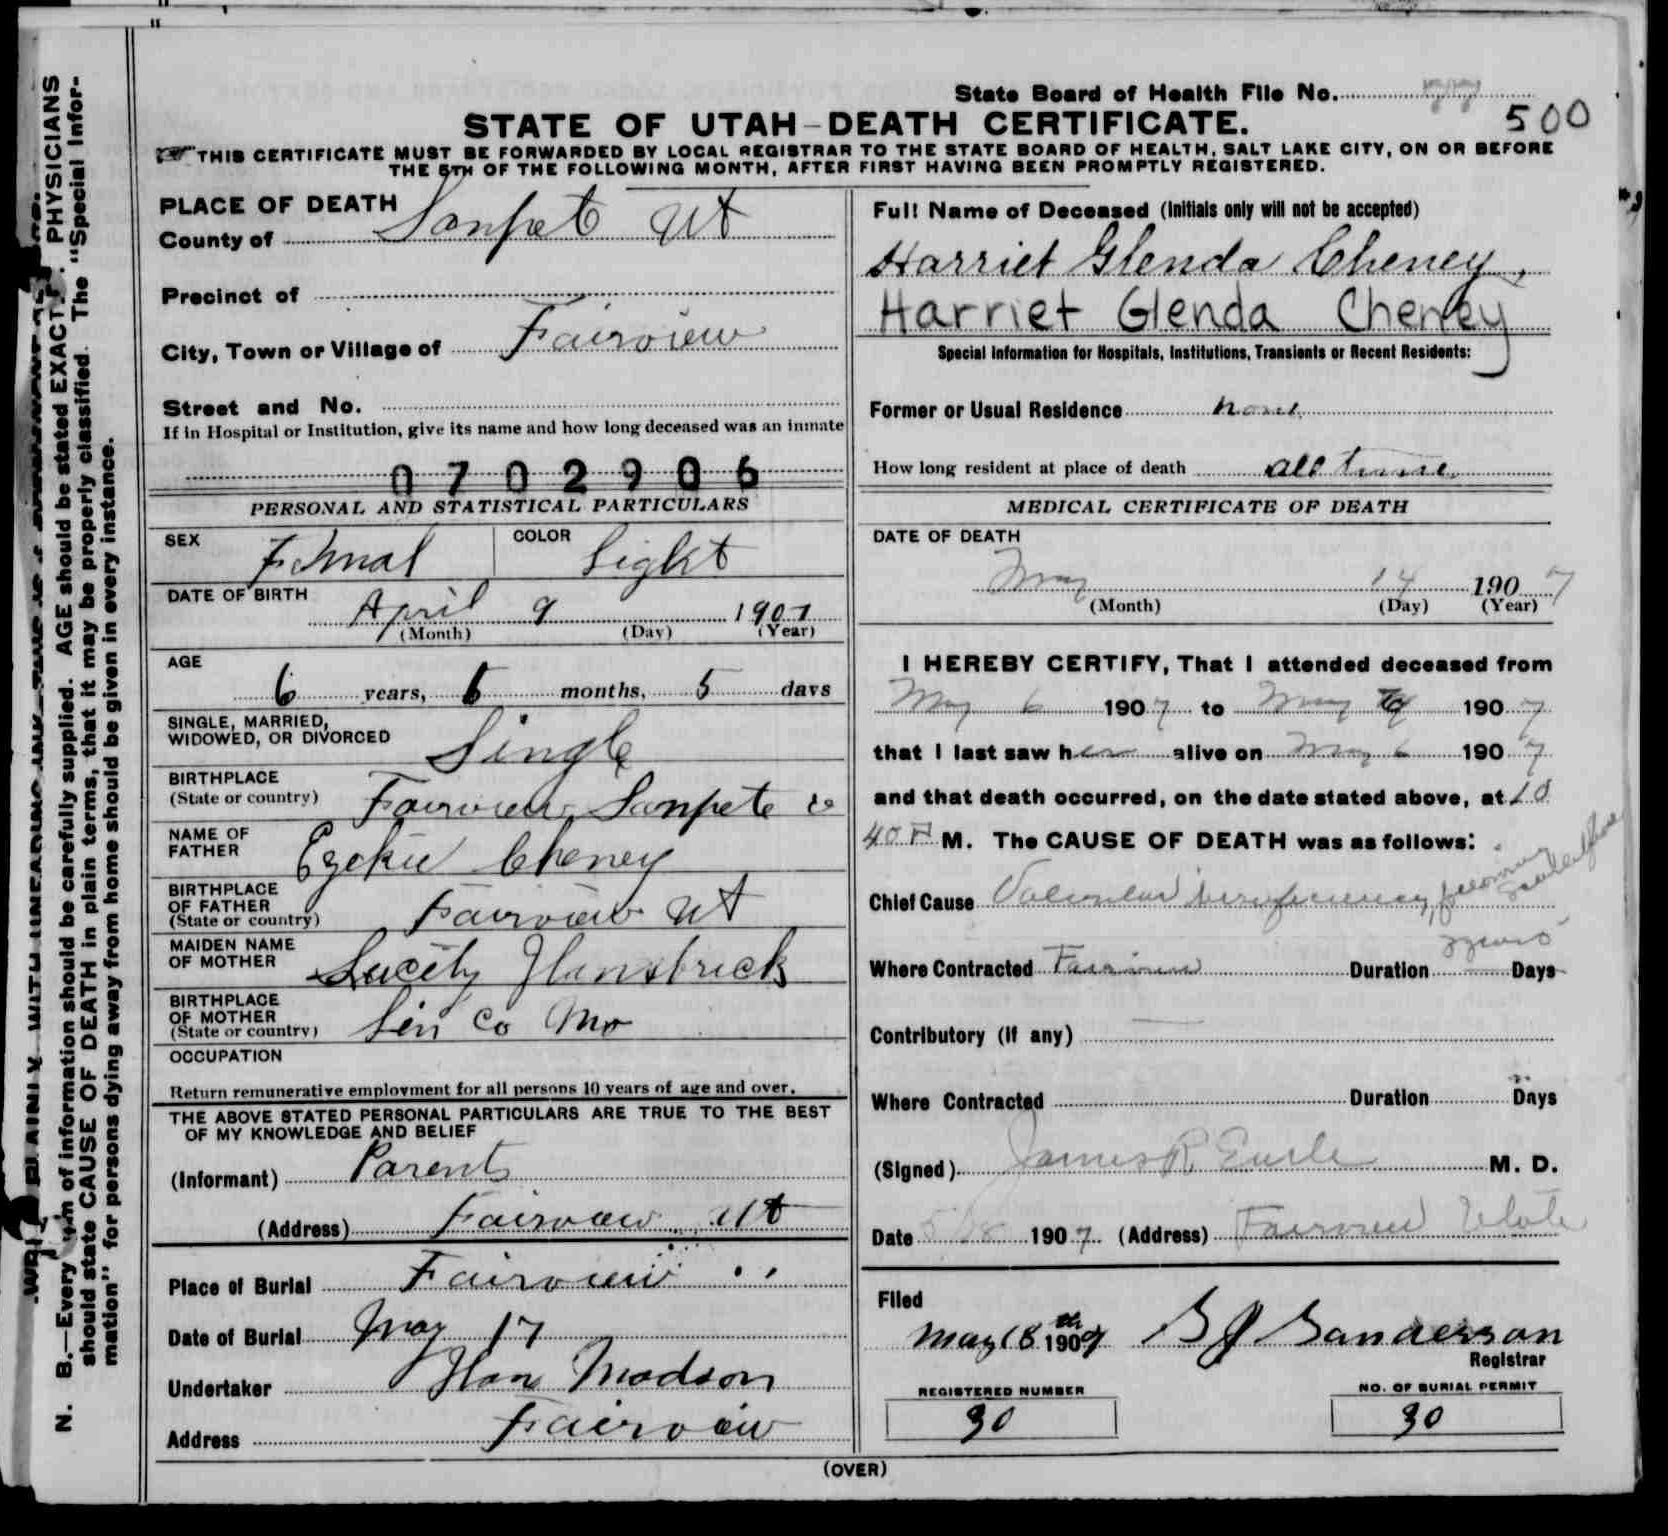 State Board of Health File No.
500
STATE OF UTAH-DEATH CERTIFICATE.
THIS CERTIFICATE MUST BE FORWARDED BY LOCAL REGISTRAR TO THE STATE BOARD OF HEALTH, SALT LAKE CITY, ON OR BEFORE
THE 5TH OF THE FOLLOWING MONTH, AFTER FIRST HAVING BEEN PROMPTLY REGISTERED.
PLACE OF DEATH
County of Sanpete Ut
Precinct of
City, Town or Village of Fairview
Street and No.
If in Hospital or Institution, give its name and how long deceased was an inmate
0702906
PERSONAL AND STATISTICAL PARTICULARS
SEX Femal COLOR Light
DATE OF BIRTH
April 9 1901
(Month) (Day) (Year)
AGE
6 years, months, 5 days
SINGLE, MARRIED,
WIDOWED, OR DIVORCED Single
BIRTHPLACE
(State or country) Fairview Sanpete Co
NAME OF
FATHER Ezekiel Cheney
BIRTHPLACE
OF FATHER
(State or country) Fairview Ut
MAIDEN NAME
OF MOTHER
BIRTHPLACE
OF MOTHER
(State or country) Lin Co Mo
OCCUPATION
Return remunerative employment for all persons 10 years of age and over.
THE ABOVE STATED PERSONAL PARTICULARS ARE TRUE TO THE BEST
OF MY KNOWLEDGE AND BELIEF
(Informant) Parents
(Address) Fairview Ut
Place of Burial Fairview
Date of Burial May 17
Undertaker Hans Madson
Address Fairview
Full Name of Deceased (Initials only will not be accepted)
Harriet Glenda Cheney,
Harriet Glenda Cheney
Special Information for Hospitals, Institutions, Transients or Recent Residents:
Former or Usual Residence none
How long resident at place of death all time
MEDICAL CERTIFICATE OF DEATH
DATE OF DEATH
May 14 1907
(Month) (Day) (Year)
I HEREBY CERTIFY, That I attended deceased from
May 6 1907 to May 1907
that I last saw her alive on May 6 1907
and that death occurred, on the date stated above, at 10
40 P M. The CAUSE OF DEATH was as follows:
Chief Cause Valvular insufficiency, following
Where Contracted Fairview Duration Days
Contributory (if any)
Where Contracted Duration Days
(Signed) James R M. D.
Date 5/18 1907 (Address) Fairview Utah
Filed
May 18th 1907 Sanderson
Registrar
REGISTERED NUMBER
30
NO. OF BURIAL PERMIT
30
(OVER)
N. B.—Every item of information should be carefully supplied. AGE should be stated EXACTLY. PHYSICIANS
should state CAUSE OF DEATH in plain terms, that it may be properly classified. The "Special Infor-
mation" for persons dying away from home should be given in every instance.